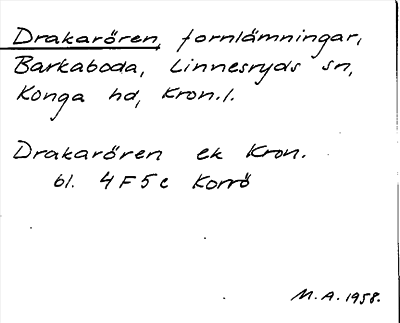 Drakarören, fornlämningar,
Barkaboda, Linnesryds sn,
Konga hd, Kron.l.
Drakarören ek Kron.
bl. 4F5c Korrö
M.A. 1958.